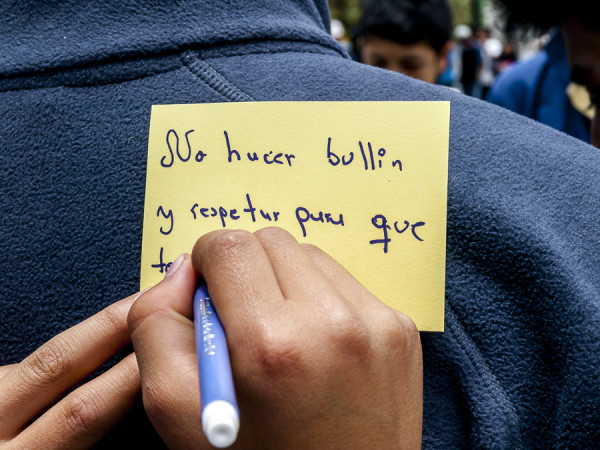 No hacer bullin
y respetar para que
te